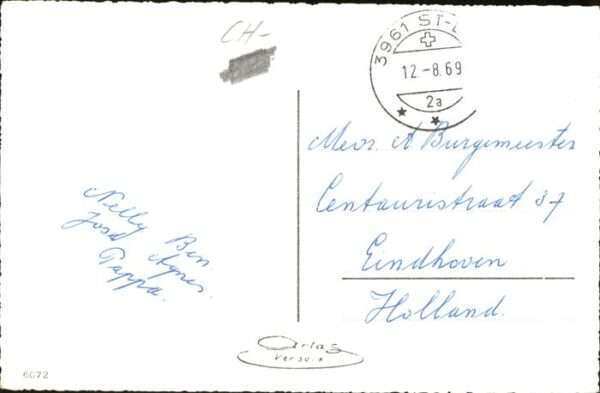 CH-
3961 ST-L
12.-8.69
2a
Nelly Ben
José Agnes.
Pappa.
Mevr. A Burgemeester
Centauristraat 37
Eindhoven
Holland.
Artas
6072